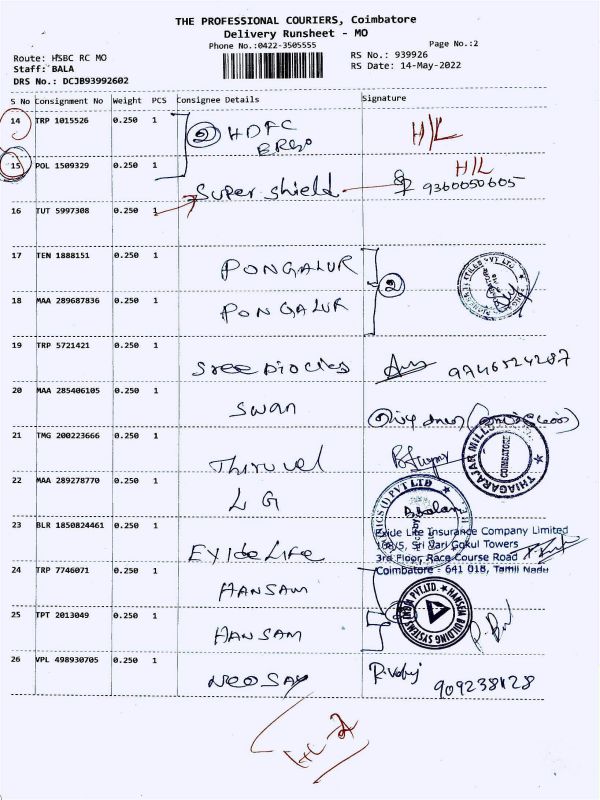 THE PROFESSIONAL COURIERS, Coimbatore
Delivery Runsheet - MO
Phone No.:0422-3505555
Page No.:2
Route: HSBC RC MO
RS No.: 939926
Staff: BALA
RS Date: 14-May-2022
DRS No.: DCJB93992602
S No Consignment No Weight PCS Consignee Details Signature
14 TRP 1015526 0.250 1 2 HDFC H/L
15 POL 1509329 0.250 1 H/L
Super shield 9360050605
16 TUT 5997308 0.250 1
17 TEN 1888151 0.250 1 PONGALUR
18 MAA 289687836 0.250 1 PONGALUR 2
19 TRP 5721421 0.250 1 Sree
20 MAA 285406105 0.250 1 Swan
21 TMG 200223666 0.250 1
THIAGARAJAR MILLS
COIMBATORE
22 MAA 289278770 0.250 1 LG
PVT LTD
23 BLR 1850824461 0.250 1 EXIDE LIFE
Exide Life Insurance Company Limited
Sri Hari Gokul Towers
3rd Floor, Race Course Road
Coimbatore - 641 018, Tamil Nadu
24 TRP 7746071 0.250 1 HANSAM
HANSEM BUILDING SYSTEMS INDIA PVT.LTD.
25 TPT 2013049 0.250 1 HANSAM
26 VPL 498930705 0.250 1